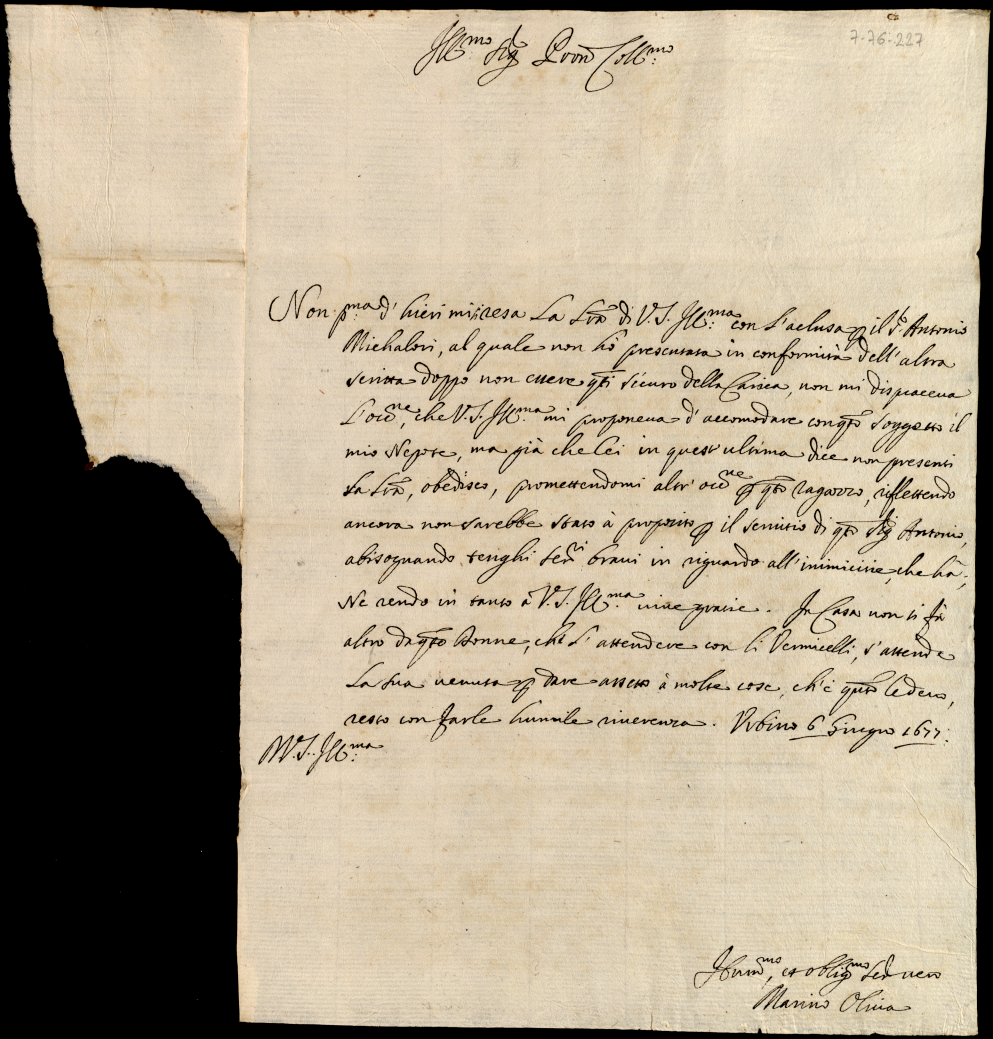 7-76-227
Ill.mo Sig. Pron Coll.mo
Non p.ma d'hieri mi resa La Lra di V.S. Ill.ma con l'aclusa p il S. Antonio
Michalori, al quale non hò presentata in conformità dell'altra
scritta doppo non essere qti sicuro della Carica, non mi dispiaceva
l'occ.ne, che V.S. Ill.ma mi proponeva d'accomodare con qto soggetto il
mio Nepote, ma già che lei in quest'ultima dice non presenti
La Lra, obedisco, promettendomi altr'occ.ne p qto ragazzo, riflettendo
ancora non sarebbe stato à proposito p il servitio di qto Sig. Antonio,
abisognando tenghi ser.ri bravi in riguardo all'inimicitie, che hà;
Ne rendo in tanto à V.S. Ill.ma vive gratie. In Casa non si fà
altro da qste Donne, che l'attendere con li Vermicelli, s'attende
La sua venuta p dare assetto à molte cose, ch'è qnto le devo,
resto con farle humile riverenza. Urbino 6 Giugno 1677:
Di V.S. Ill.ma
Hum.mo, et oblig.mo Ser. vero
Marino Oliva